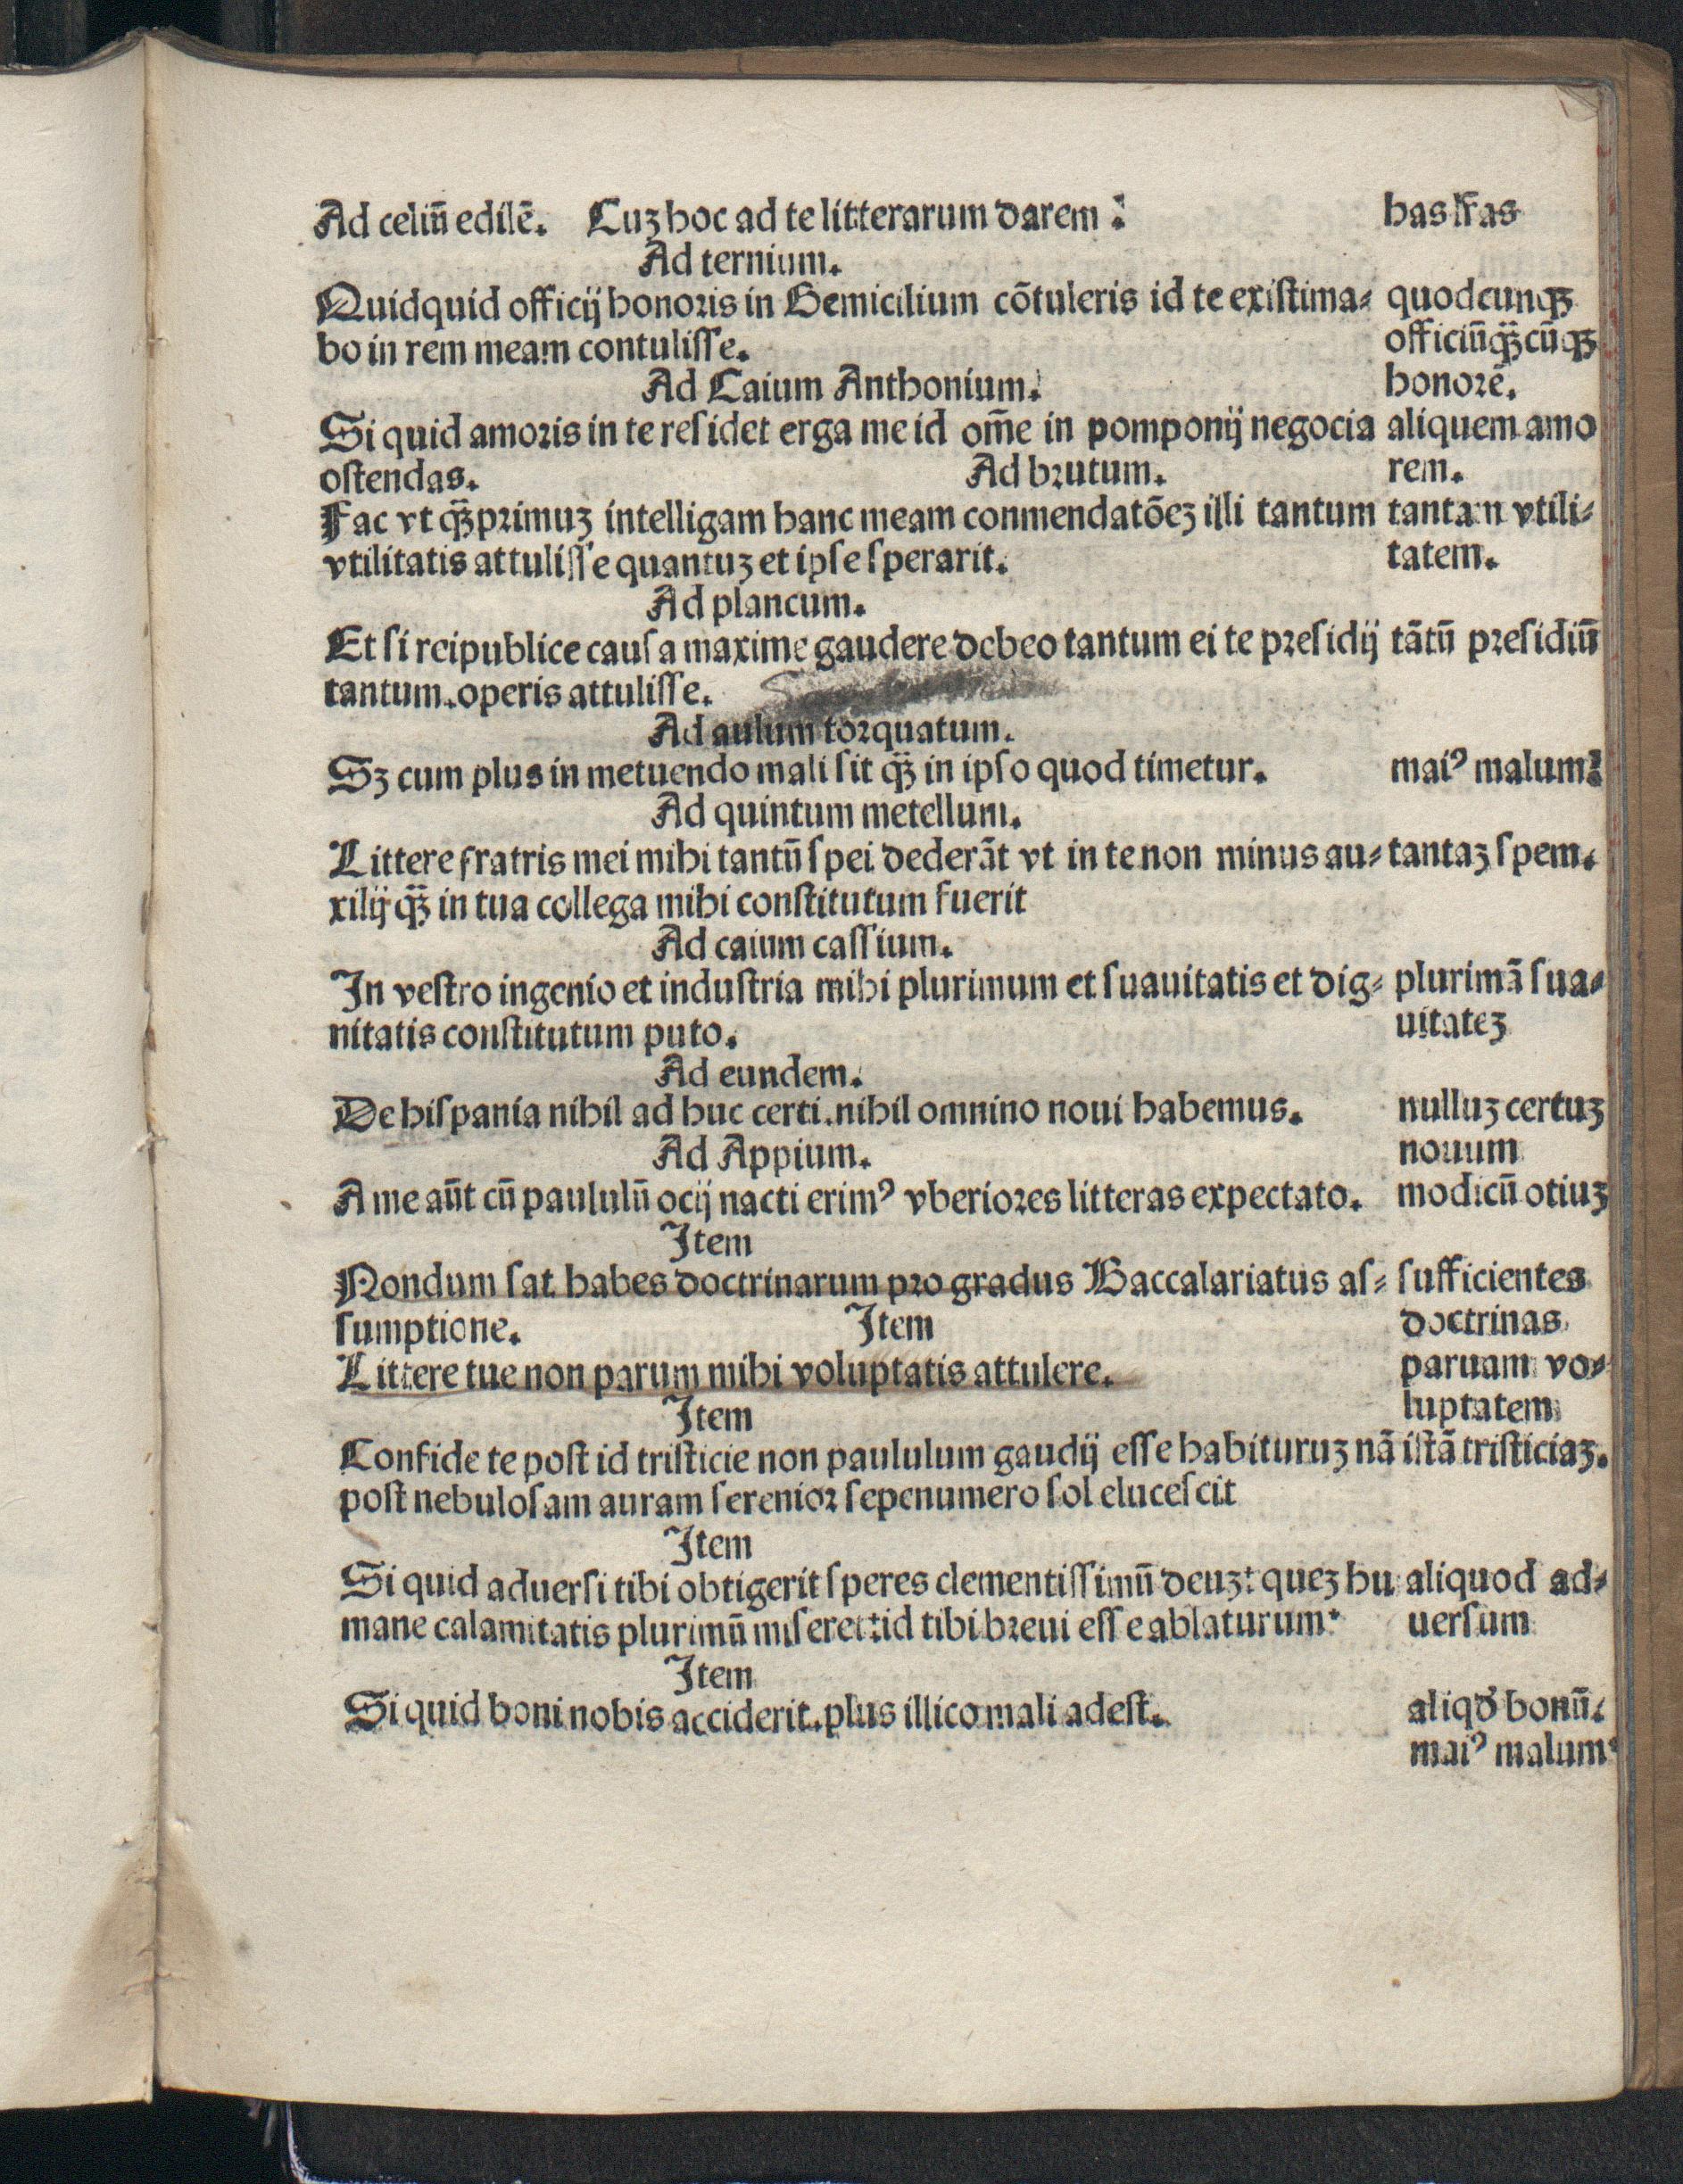 Ad celiū edilē. Cuꝫ hoc ad te litterarum darem: has lr̄as
Ad ternium.
Quidquid officij honoris in Hemicilium cōtuleris id te existima⸗ quodcunqꝫ
bo in rem meam contulisse. officiū qᷓꝫcūqꝫ
Ad Caium Anthonium. honorē.
Si quid amoris in te residet erga me id om̄e in pomponij negocia aliquem amo
ostendas. Ad brutum. rem.
Fac vt qᷓꝫprimuꝫ intelligam hanc meam conmendatōeꝫ illi tantum tantam vtili⸗
vtilitatis attulisse quantuꝫ et ipse sperarit. tatem.
Ad plancum.
Et si reipublice causa maxime gaudere debeo tantum ei te presidij tātū presidiū
tantum.operis attulisse.
Ad aulum torquatum.
Sꝫ cum plus in metuendo mali sit qᷓꝫ in ipso quod timetur. maiꝰ malum:
Ad quintum metellum.
Littere fratris mei mihi tantū spei dederāt vt in te non minus au⸗ tantaꝫ spem.
xilij qᷓꝫ in tua collega mihi constitutum fuerit
Ad caium cassium.
In vestro ingenio et industria mihi plurimum et suauitatis et dig⸗ plurimā sua⸗
nitatis constitutum puto. uitateꝫ
Ad eundem.
De hispania nihil ad huc certi.nihil omnino noui habemus. nulluꝫ certuꝫ
Ad Appium. nouum
A me aūt cū paululū ocij nacti erimꝰ vberiores litteras expectato. modicū otiuꝫ
Item
Nondum sat habes doctrinarum pro gradus Baccalariatus as⸗ sufficientes
sumptione. Item doctrinas
Littere tue non parum mihi voluptatis attulere. paruam vo⸗
Item luptatem
Confide te post id tristicie non paululum gaudij esse habituruꝫ nā istā tristiciaꝫ.
post nebulosam auram serenior sepenumero sol elucescit
Item
Si quid aduersi tibi obtigerit speres clementissimū deuꝫ: queꝫ hu aliquod ad⸗
mane calamitatis plurimū miseret:id tibi breui esse ablaturum. uersum
Item
Si quid boni nobis acciderit.plus illico mali adest. aliqd̓ bonū.
maiꝰ malum